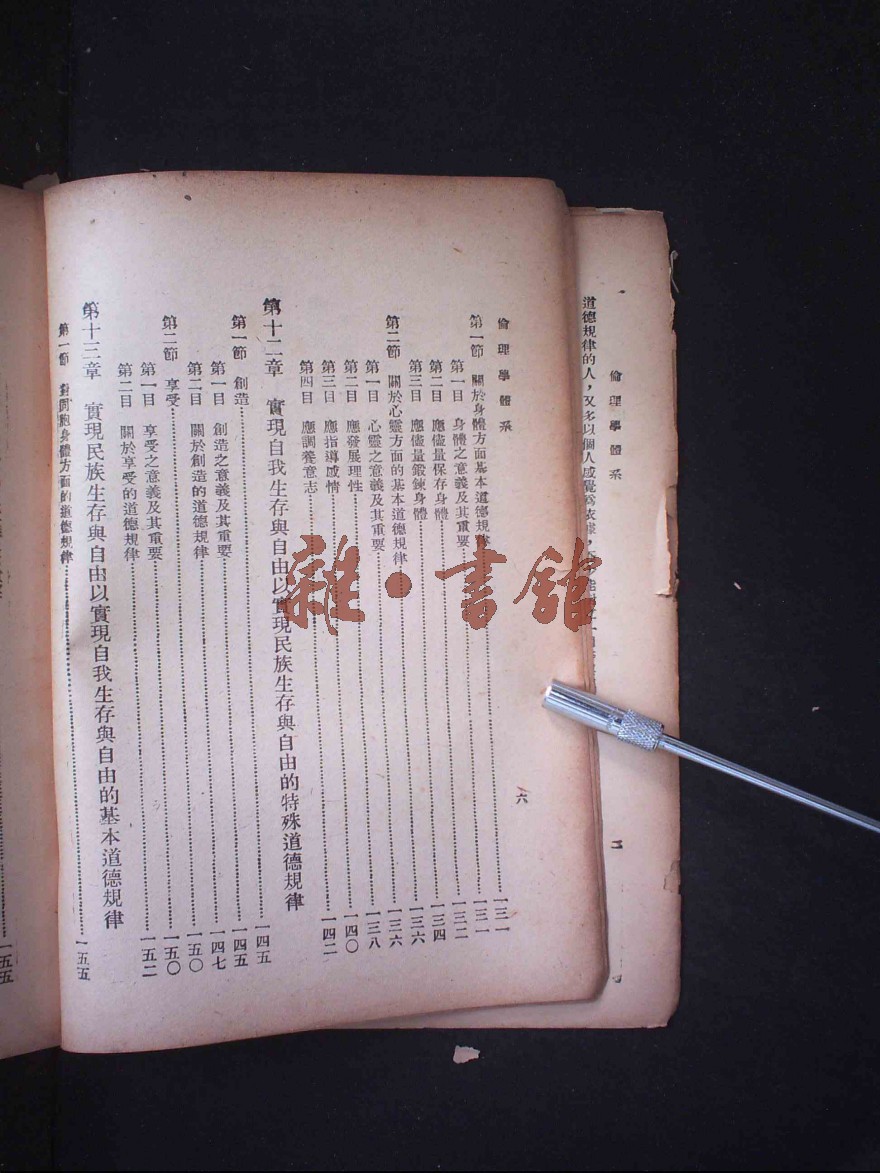 倫理學體系
二
道德規律的人，又多以個人感覺爲依據，
倫理學體系
六
第一節 關於身體方面基本道德規律 一三一
第一目 身體之意義及其重要 一三一
第二目 應儘量保存身體 一三二
第三目 應儘量鍛鍊身體 一三四
第二節 關於心靈方面的基本道德規律 一三六
第一目 心靈之意義及其重要 一三六
第二目 應發展理性 一三八
第三目 應指導感情 一四〇
第四目 應調養意志 一四二
第十二章 實現自我生存與自由以實現民族生存與自由的特殊道德規律
第一節 創造 一四五
第一目 創造之意義及其重要 一四五
第二目 關於創造的道德規律 一四七
第二節 享受 一五〇
第一目 享受之意義及其重要 一五〇
第二目 關於享受的道德規律 一五二
第十三章 實現民族生存與自由以實現自我生存與自由的基本道德規律
第一節 對同胞身體方面的道德規律 一五五
一五五
雜·書館